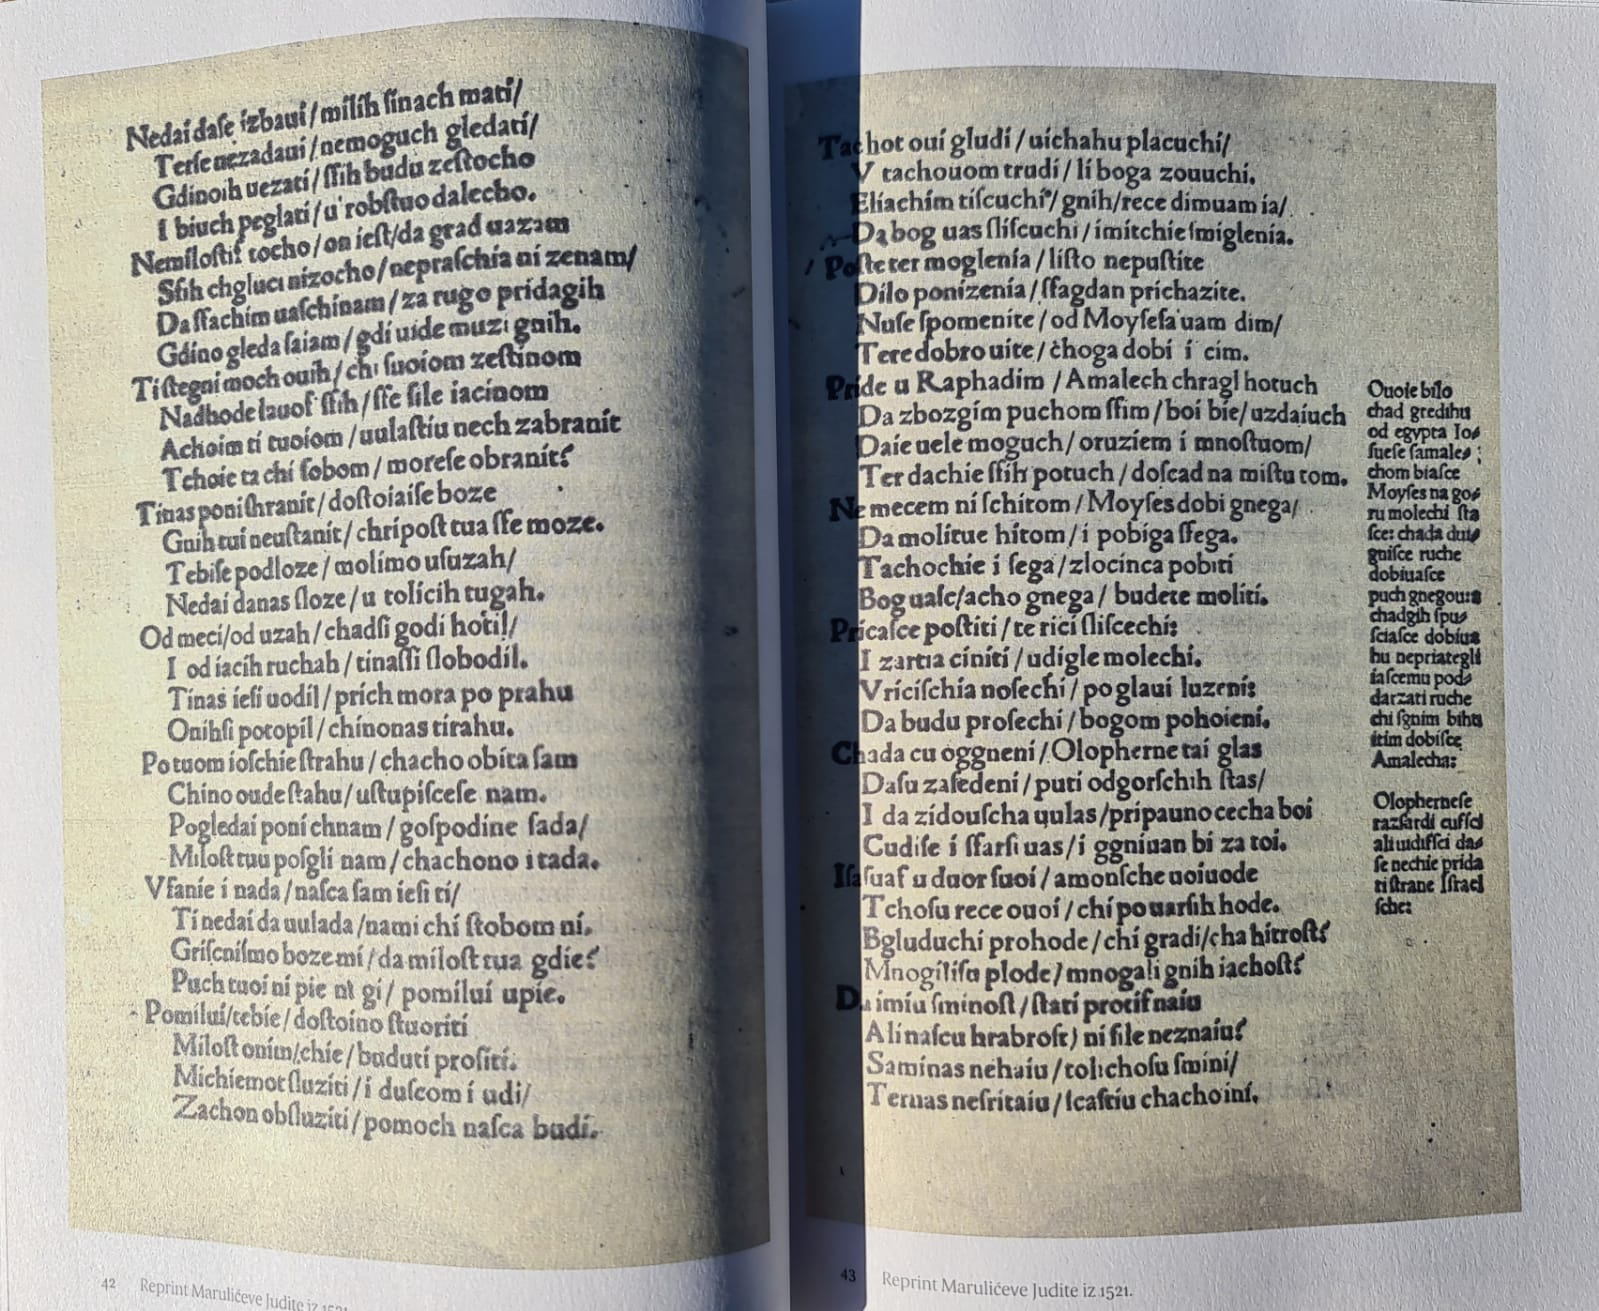 Nedaí daſe izbauí / mílíh ſínach matí /
Terſe nezadauí / nemoguch gledatí /
Gdinoíh uezatí / ſſíh budu zeſtocho
I bíuch peglatí / u robſtuo dalecho.
Nemíloſtíf tocho / on íeſt / da grad uazam
Sſíh chgluci nízocho / nepraſchía ní zenam /
Da ſſachím uaſchínam / za rugo pridagíh
Gdíno gleda ſaíam / gdí uíde muzí gníh.
Tí ſtegní moch ouíh / chí ſuoíom zeſtínom
Nadhode lauof ſſíh / ſſe ſíle íacínom
Achoím tí tuoíom / uulaſtíu nech zabranít
Tchoíe ta chí ſobom / moreſe obranít?
Tínas poní ſhranít / doſtoíaíſe boze
Gníh tuí neuſtanít / chrípoſt tua ſſe moze.
Tebíſe podloze / molímo uſuzah /
Nedaí danas ſloze / u tolícíh tugah.
Od mecí / od uzah / chadſí godí hotíl /
I od íacíh ruchah / tínaſſí ſlobodíl.
Tínas íeſí uodíl / prích mora po prahu
Oníhſí potopíl / chínonas tírahu.
Po tuom íoſchíe ſtrahu / chacho obíta ſam
Chíno oude ſtahu / uſtupíſceſe nam.
Pogledaí poní chnam / goſpodíne ſada /
Míloſt tuu poſglí nam / chachono í tada.
Vfaníe í nada / naſca ſam íeſí tí /
Tí nedaí da uulada / namí chí ſtobom ní.
Gríſcníſmo boze mí / da míloſt tua gdíe?
Puch tuoí ní píe nt gí / pomíluí upíe.
Pomíluí / tebíe / doſtoíno ſtuorítí
Míloſt oním / chíe / budutí proſítí.
Míchíemot ſluzítí / í duſcom í udí /
Zachon obſluzítí / pomoch naſca budí.
42 Reprint Marulićeve Judite iz 1521.
Tachot ouí gludí / uíchahu placuchí /
V tachouom trudí / lí boga zouuchí.
Elíachím tíſcuchí / gníh / rece dímuam ía /
Da bog uas ſlíſcuchí / ímítchíe ſmíglenía.
Poſte ter moglenía / líſto nepuſtíte
Dílo ponízenía / ſſagdan príchazíte.
Nuſe ſpomeníte / od Moyſeſa uam dím /
Tere dobro uíte / choga dobí í cím.
Príde u Raphadím / Amalech chragl hotuch
Da zbozgím puchom ſſím / boí bíe / uzdaíuch
Daíe uele moguch / oruzíem í mnoſtuom /
Ter dachíe ſſíh potuch / doſcad na míſtu tom.
Ne mecem ní ſchítom / Moyſes dobí gnega /
Da molítue hítom / í pobíga ſſega.
Tachochíe í ſega / zlocínca pobítí
Bog uaſc / acho gnega / budete molítí.
Prícaſce poſtítí / te ricí ſlíſcechí:
I zartía cínítí / udígle molechí.
Vrícíſchía noſechí / po glauí luzení:
Da budu proſechí / bogom pohoiení.
Chada cu oggnení / Olopherne taí glas
Daſu zaſedení / putí odgorſchíh ſtas /
I da zídouſcha ulas / prípauno cecha boí
Cudíſe í ſſarſí uas / í ggníuan bí za toí.
Iſaſuaf u duor ſuoí / amonſche uoíuode
Tchoſu rece ouoí / chí po uarſíh hode.
Bgluduchí prohode / chí gradí / cha hítroſt?
Mnogílíſu plode / mnogalí gníh íachoſt?
Da ímíu ſmínoſt / ſtatí protíf naíu
Alí naſcu hrabroſt) ní ſíle neznaíu?
Samínas nehaíu / tolíchoſu ſmíní /
Teruas neſrítaíu / ſcaſtíu chacho íní.
Ouoíe bílo
chad gredíhu
od egypta Io⸗
ſueſe ſamale⸗
chom bíaſce
Moyſes na go⸗
ru molechí ſta
ſce: chada duíg⸗
gníſce ruche
dobíuaſce
puch gnegou: a
chadgíh ſpu⸗
ſcíaſce dobíua
hu nepríateglí
íaſcemu pod⸗
darzatí ruche
chí ſgním bíhu
ítím dobíſce
Amalecha:
Olopherneſe
razſardí cuſſcí
alí uídíſſcí da⸗
ſe nechíe prída
tí ſtrane Iſrael
ſche:
43 Reprint Marulićeve Judite iz 1521.